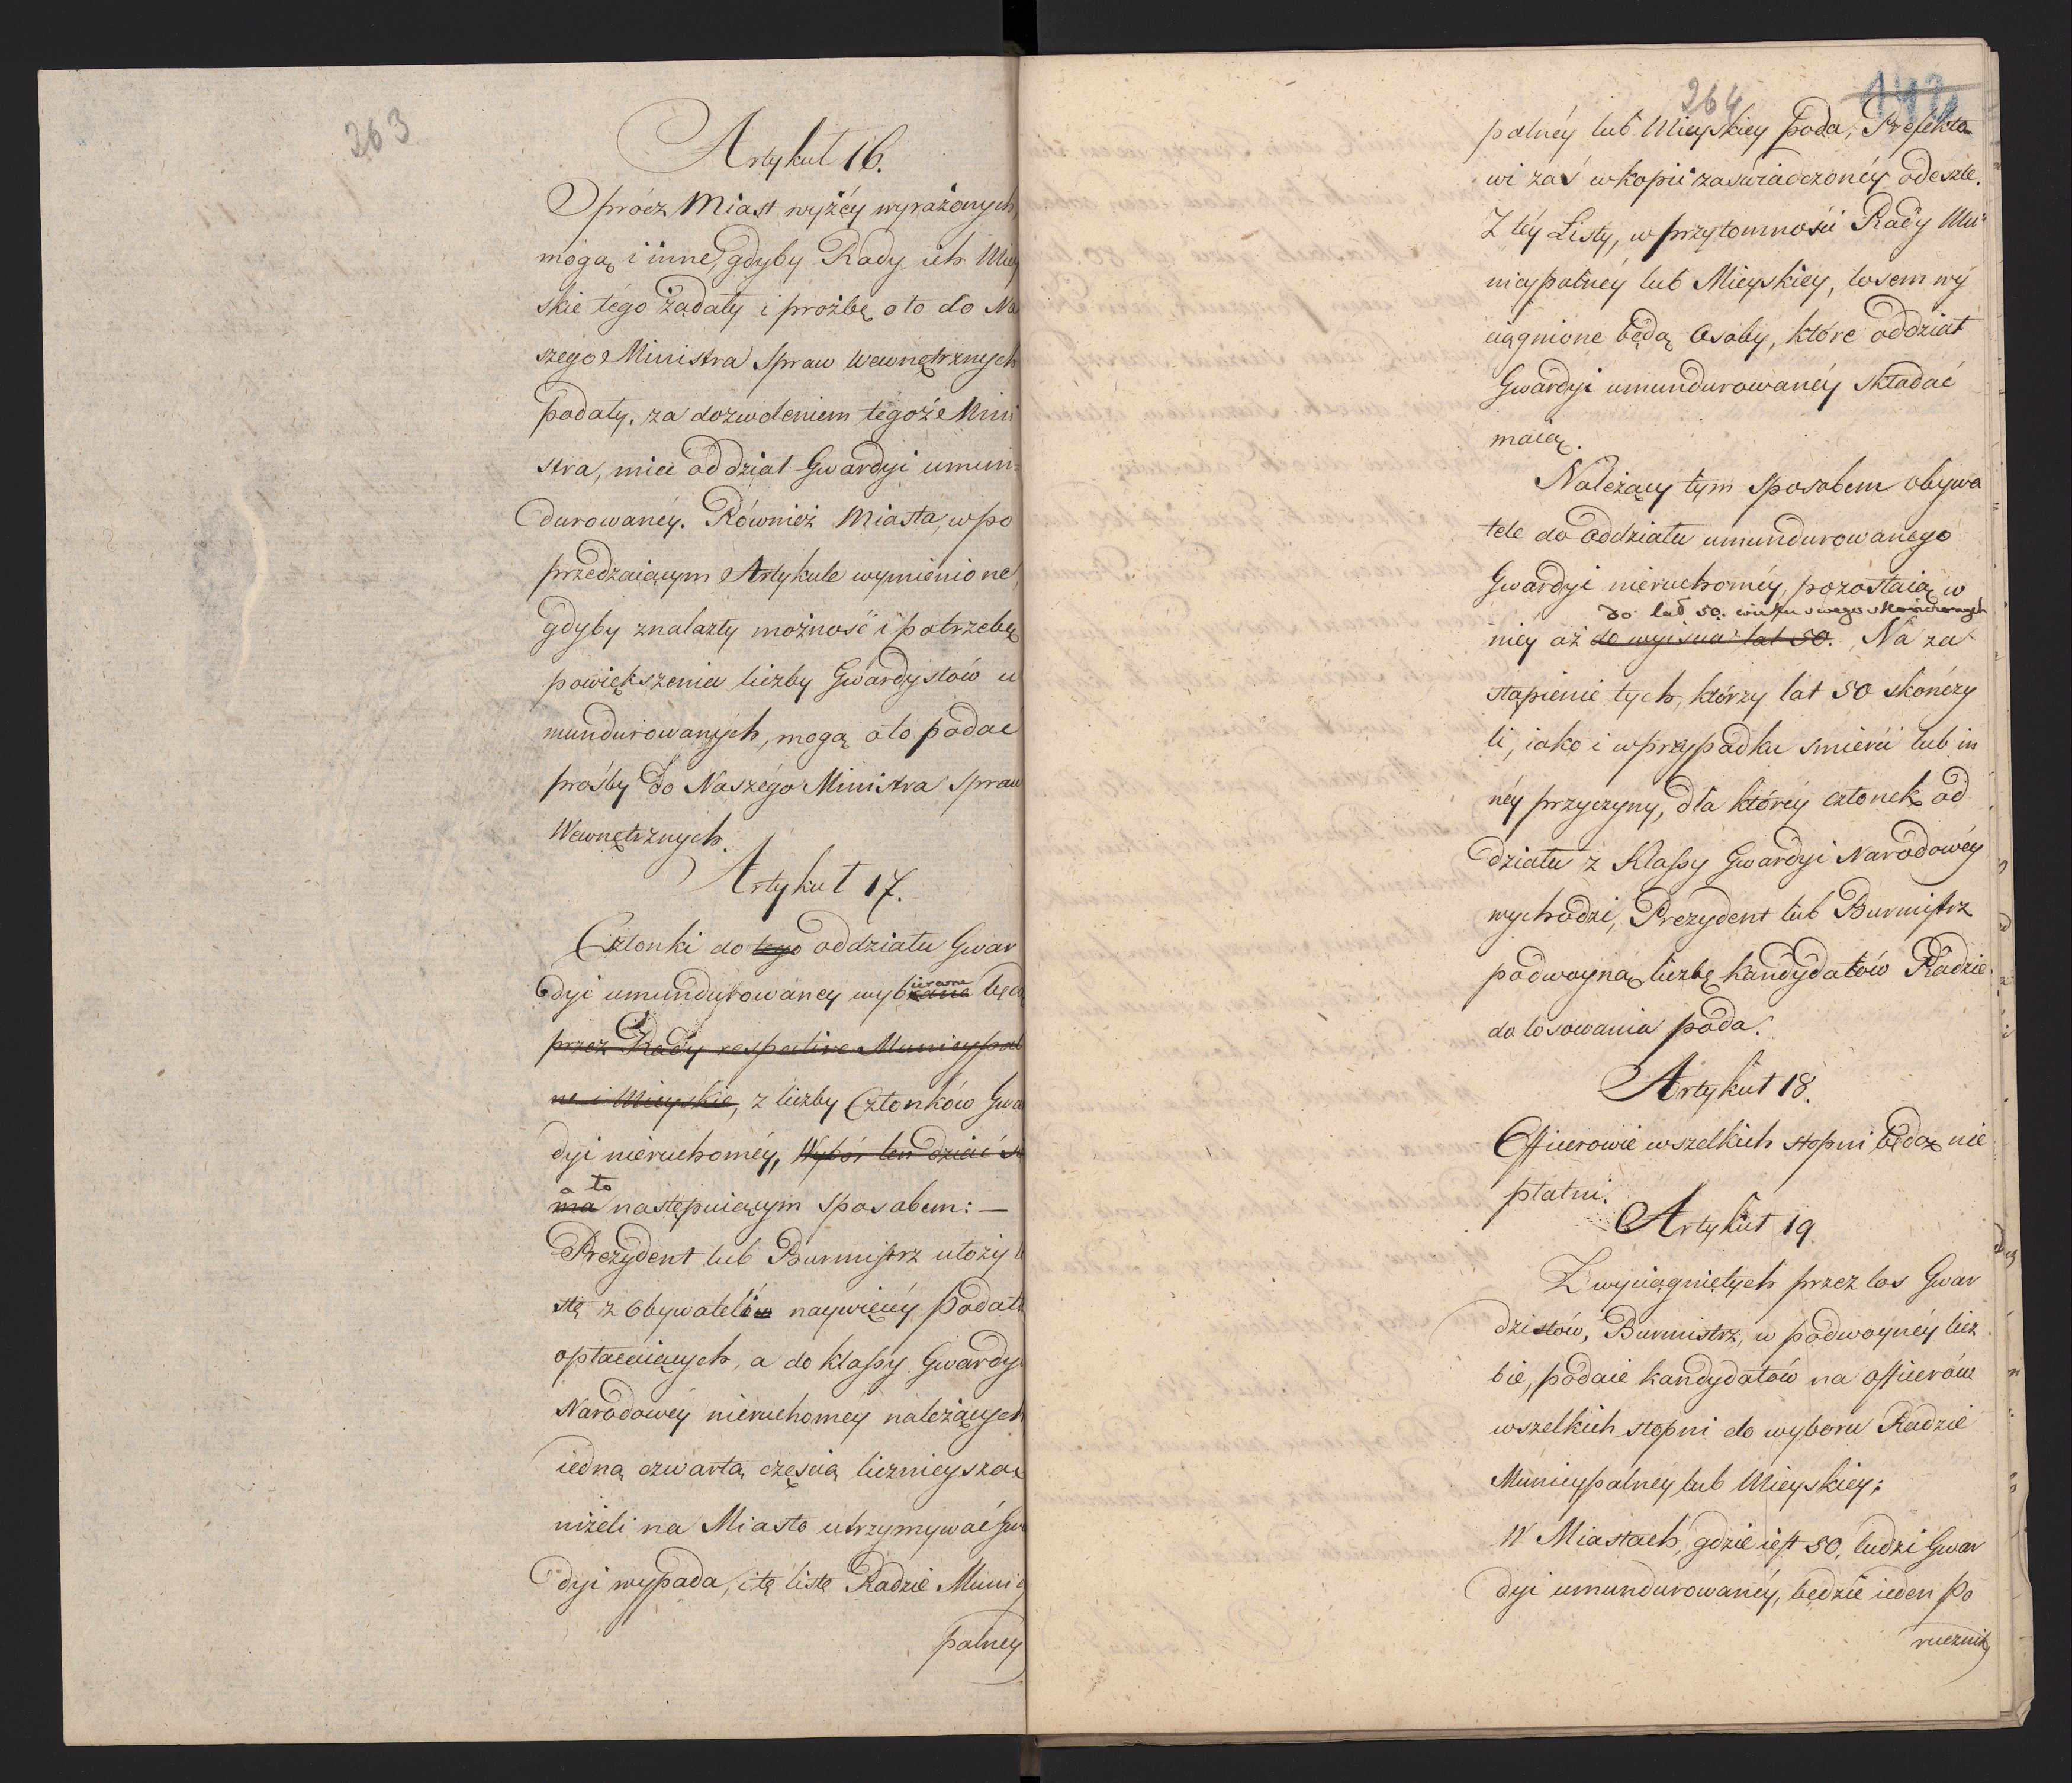 263
Artykuł 16.
Oprócz Miast wyżéy wyrażonych,
mogą i inne, gdyby Rady ich Miey
skie tego żądały i proźbę o to do Na
szego Ministra Spraw Wewnętrznych
podały, za dozwoleniem tegoż Mini
stra, mieć oddział Gwardyi umun=
durowanéy. Również Miasta, w po
przedzaiącym Artykule wymienione,
gdyby znalazły możność i potrzebę
powiększenia liczby Gwardystów u
mundurowanych, mogą o to podać
prośby do Naszégo Ministra Spraw
Wewnętrznych.
Artykuł 17.
Członki do tego oddziału Gwar
dyi umundurowanéy wybrane ierane będą
przez Rady respective Municypal
ne i Mieyskie, z liczby Członków Gwa
dyi nieruchoméy, Wybór ten dziać si
a to
ma następuiącym sposobem: —
Prezydent lub Burmistrz ułoży li
stę z Obywateli naywięcéy podatk
opłacaiących, a do klassy Gwardyi
Narodowéy nieruchoméy należących
iedną czwartą częścią licznieyszą
niżeli na Miasto utrzymywać Gwa
dyi wypada, i tę listę Radzie Munic
palney
264
142
palnéy lub Mieyskiey poda, Prefekto
wi zaś w kopii zaświadczonéy odeszle.
Z téy Listy, w przytomności Rady Mu
nicypalnéy lub Mieyskiey, losem wy
ciągnione będą Osoby, które oddział
Gwardyi umundurowanéy składać
maią.
Należący tym sposobem obywa
tele do Oddziału umundurowanego
Gwardyi nieruchoméy, pozostaią w
do lat 50. wieku swego skończonych
niey aż do wyiścia lat 50. Na za
stąpienie tych, którzy lat 50 skończy
li, iako i w przypadku śmierci lub in
néy przyczyny, dla któréy członek od
działu z Klassy Gwardyi Narodowéy
wychodzi, Prezydent lub Burmistrz
podwoyną liczbę kandydatów Radzie
do losowania poda.
Artykuł 18.
Officerowie wszelkich stopni będą nie
płatni.
Artykuł 19
Z wyciągniętych przez los Gwar
dzistów, Burmistrz, w podwoynéy licz
bie, podaie kandydatów na officerów
wszelkich stopni do wyboru Radzie
Municypalney lub Mieyskiey;
W Miastach, gdzie iest 50, ludzi Gwar
dyi umundurowanéy, będzie ieden Po
rucznik